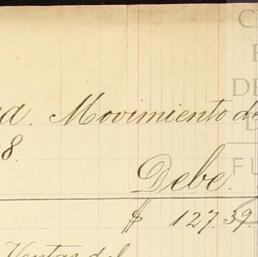 a. Movimiento de
8.
Debe.
$ 127.39.
Ventas del